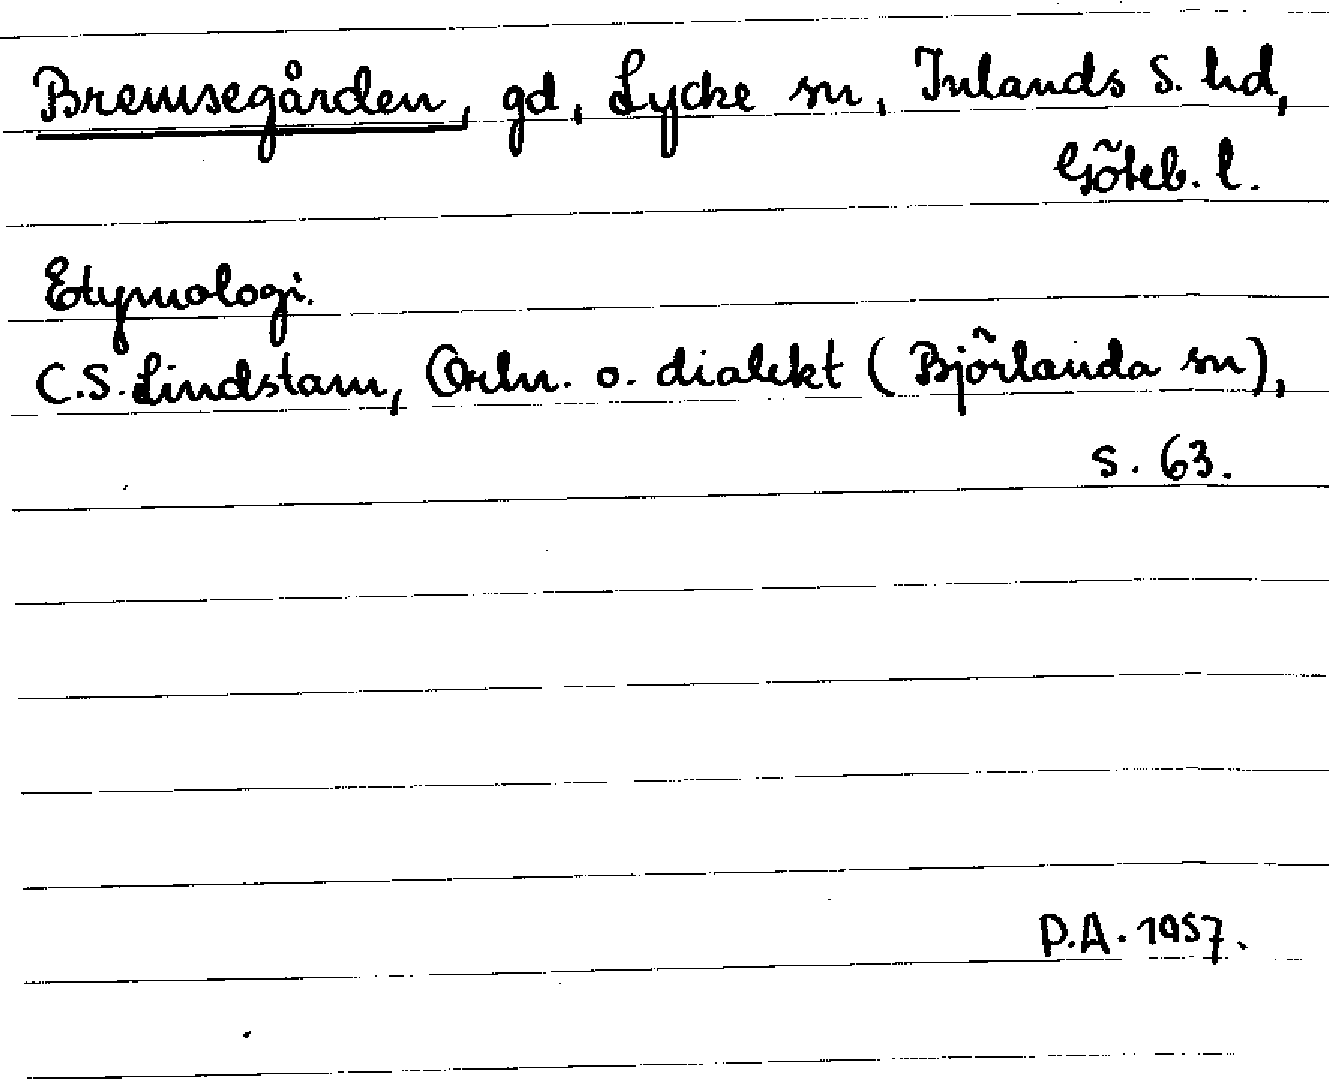 Bremsegården, gd, Lycke sn, Inlands S. hd,
Göteb. l.
Etymologi.
C.S. Lindstam, Ortn. o. dialekt (Björlanda sn),
s. 63.
P.A. 1957.